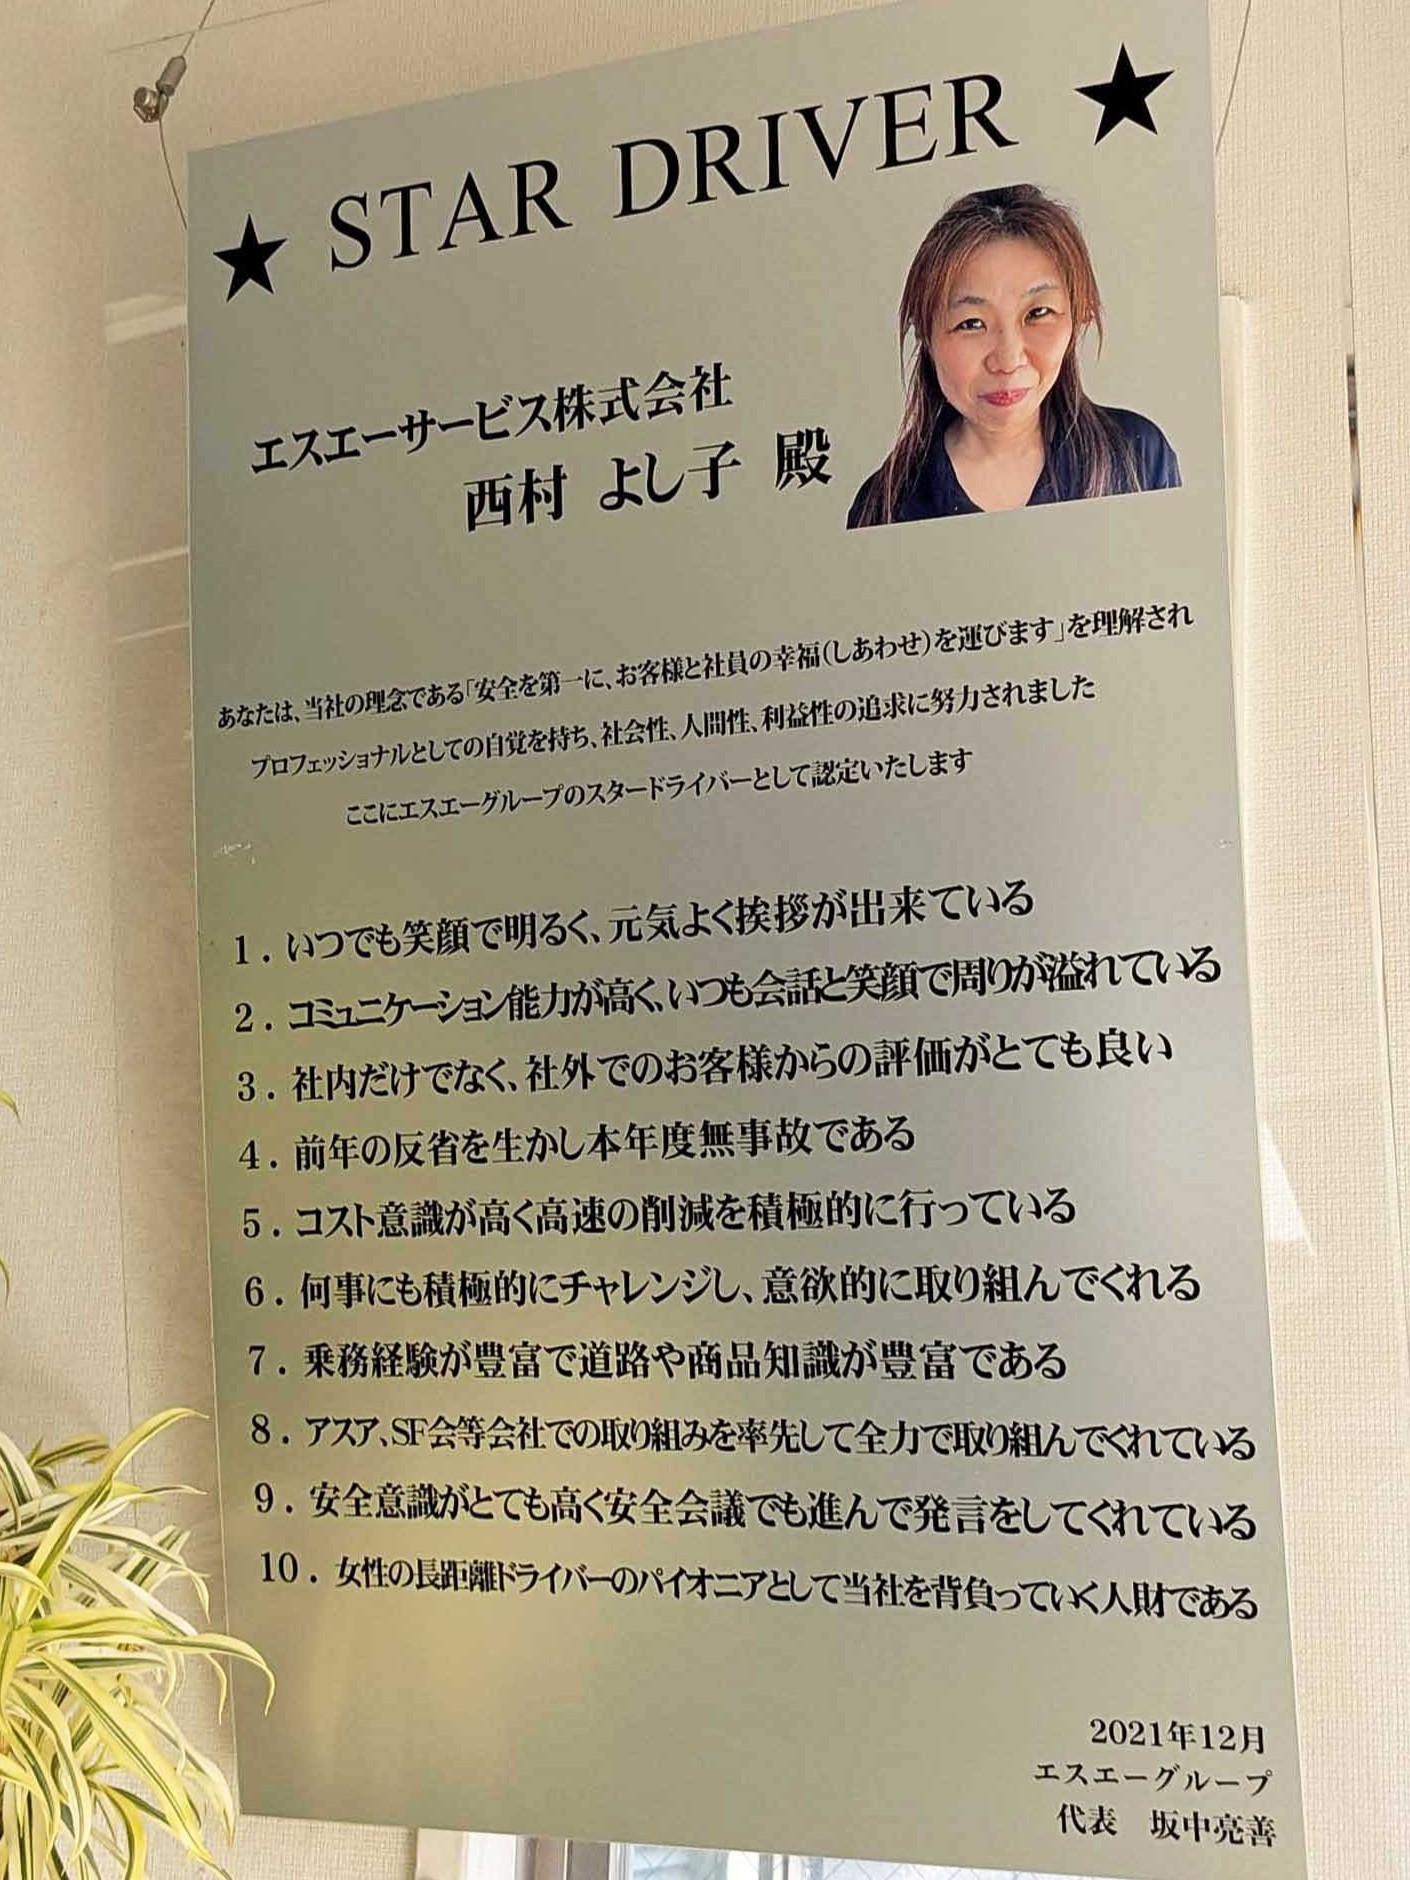 ★ STAR DRIVER ★
エスエーサービス株式会社
西村 よし子 殿
あなたは、当社の理念である「安全を第一に、お客様と社員の幸福(しあわせ)を運びます」を理解され
プロフェッショナルとしての自覚を持ち、社会性、人間性、利益性の追求に努力されました
ここにエスエーグループのスタードライバーとして認定いたします
1. いつでも笑顔で明るく、元気よく挨拶が出来ている
2. コミュニケーション能力が高く、いつも会話と笑顔で周りが溢れている
3. 社内だけでなく、社外でのお客様からの評価がとても良い
4. 前年の反省を生かし本年度無事故である
5. コスト意識が高く高速の削減を積極的に行っている
6. 何事にも積極的にチャレンジし、意欲的に取り組んでくれる
7. 乗務経験が豊富で道路や商品知識が豊富である
8. アスア、SF会等会社での取り組みを率先して全力で取り組んでくれている
9. 安全意識がとても高く安全会議でも進んで発言をしてくれている
10. 女性の長距離ドライバーのパイオニアとして当社を背負っていく人財である
2021年12月
エスエーグループ
代表 坂中亮善